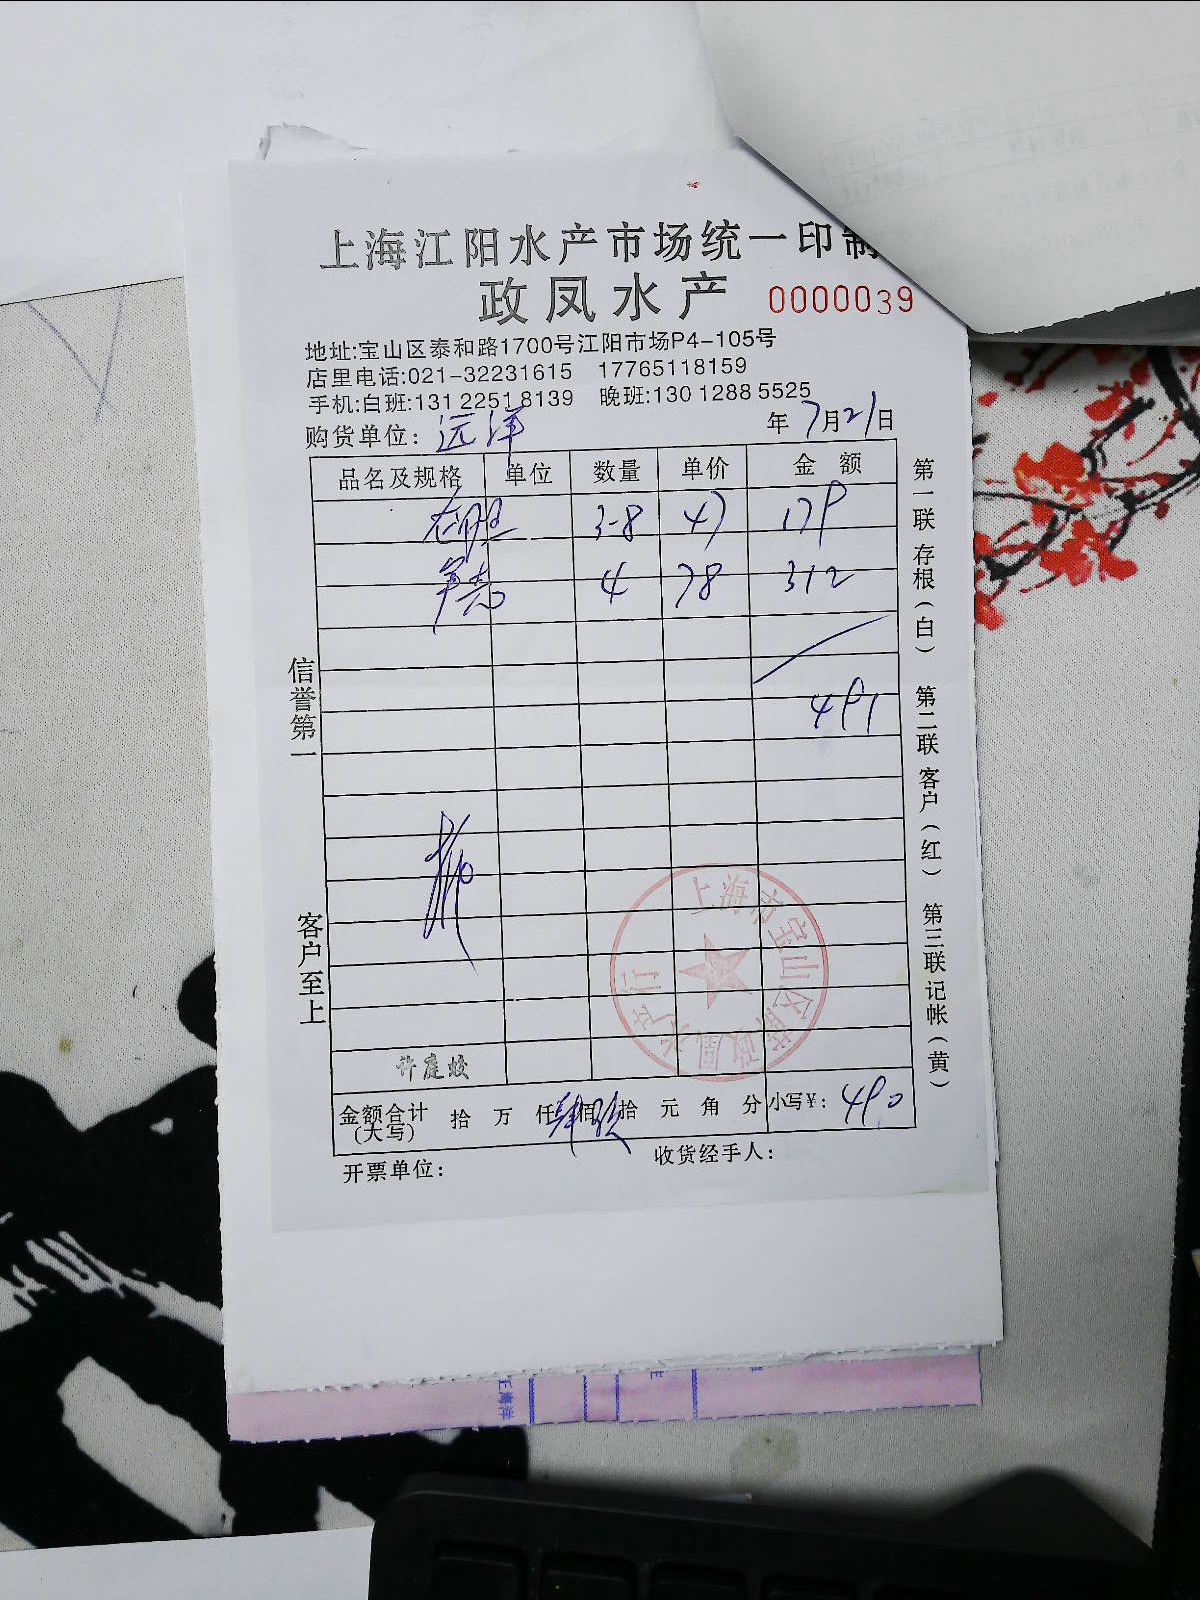 上海江阳水产市场统一印制
政凤水产 0000039
地址:宝山区泰和路1700号江阳市场P4-105号
店里电话:021-32231615 17765118159
手机:白班:131 2251 8139 晚班:130 1288 5525
购货单位: 远洋 年 7月21日
品名及规格 单位 数量 单价 金额
3-8 47 179
4 78 312
491
信誉第一
客户至上
第一联 存根(白) 第二联 客户(红) 第三联 记帐(黄)
上海市宝山区 政凤水产行
许庭蛟
金额合计(大写) 拾 万 仟 佰 拾 元 角 分 小写¥: 490
开票单位: 收货经手人: